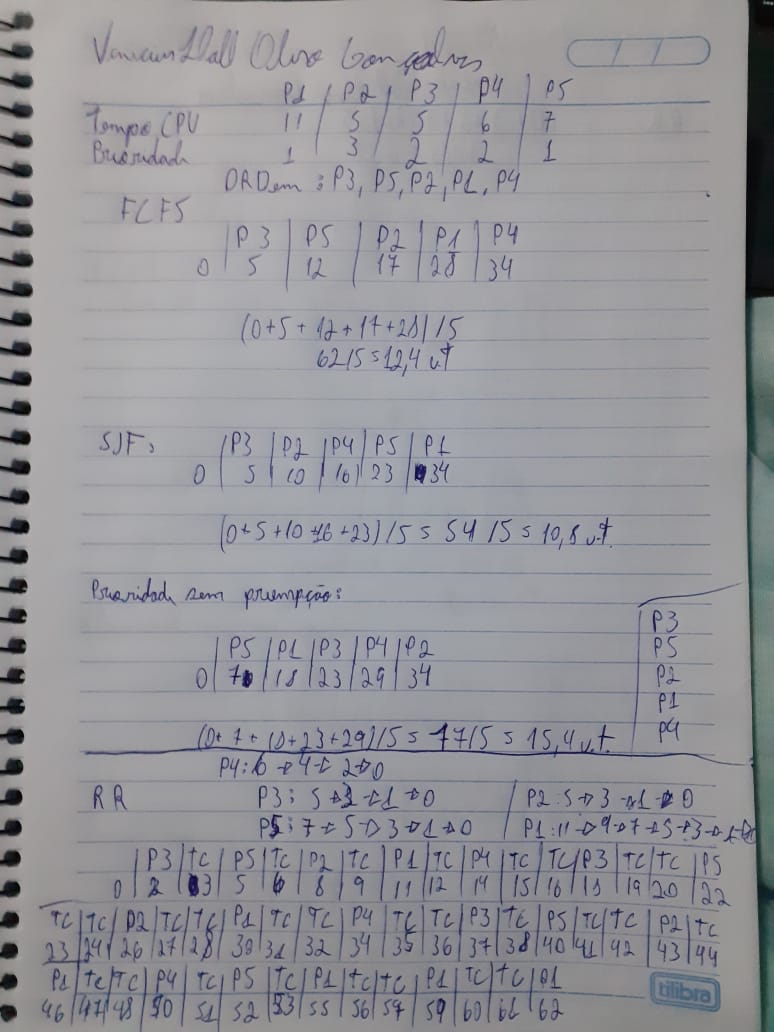 P1 | P2 | P3 | P4 | P5
Tempo CPU 11 | 5 | 5 | 6 | 7
Prioridade 1 | 3 | 2 | 2 | 1
ORDem : P3, P5, P2, P1, P4
FCFS
| P3 | P5 | P2 | P1 | P4
0 | 5 | 12 | 17 | 28 | 34
(0+5+12+17+28)/5
62/5 = 12,4 u.t
SJF:
| P3 | P2 | P4 | P5 | P1
0 | 5 | 10 | 16 | 23 | 34
(0+5+10+16+23)/5 = 54/5 = 10,8 u.t.
Prioridade sem preempção:
| P5 | P1 | P3 | P4 | P2
0 | 7 | 18 | 23 | 29 | 34
P3
P5
P2
P1
P4
(0+7+18+23+29)/5 = 77/5 = 15,4 u.t.
P4: 6 → 4 → 2 → 0
RR P3: 5 → 3 → 1 → 0 | P2: 5 → 3 → 1 → 0
P5: 7 → 5 → 3 → 1 → 0 | P1: 11 → 9 → 7 → 5 → 3 → 1 → 0
| P3 | TC | P5 | TC | P2 | TC | P1 | TC | P4 | TC | TC | P3 | TC | TC | P5
0 | 2 | 3 | 5 | 6 | 8 | 9 | 11 | 12 | 14 | 15 | 16 | 18 | 19 | 20 | 22
TC | TC | P2 | TC | TC | P1 | TC | TC | P4 | TC | TC | P3 | TC | P5 | TC | TC | P2 | TC
23 | 24 | 26 | 27 | 28 | 30 | 31 | 32 | 34 | 35 | 36 | 37 | 38 | 40 | 41 | 42 | 43 | 44
P1 | TC | TC | P4 | TC | P5 | TC | P1 | TC | TC | P1 | TC | TC | P1
46 | 47 | 48 | 50 | 51 | 52 | 53 | 55 | 56 | 57 | 59 | 60 | 61 | 62
tilibra